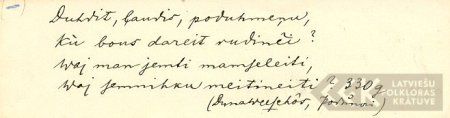 Duhdit, ļaudis, poduhmeņu,
Kù bous dareit rudinči?
Waj man jemti mamseleiti,
Waj semnihku meitineiti? 330g
(Dunaweeschôs,
LATVIEŠU
FOLKLORAS
KRĀTUVE